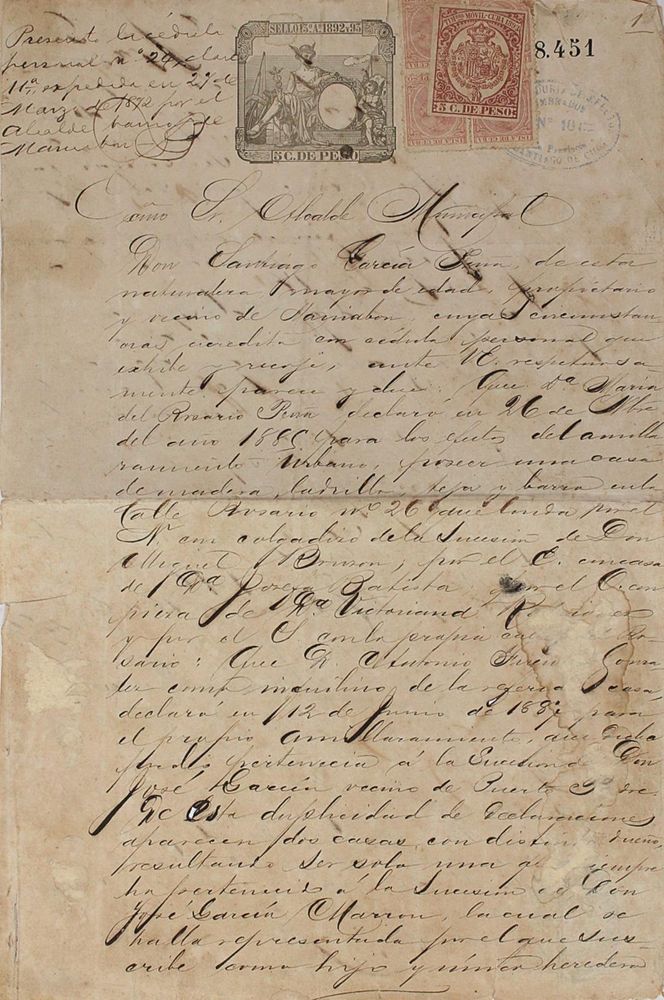 Presento la cédula
personal nº 24, clase
11ª, expedida en 29 de
Marzo de 1892 por el
Alcalde barrio de
Maniabon
SELLO 5º A. 1892 Y 93
5 C. DE PESO
MOVIL-CUBA
5 C. DE PESO
8.451
1
SANTIAGO DE CUBA
Excmo Sr. Alcalde Municipal
Don Santiago García Pena, de esta
naturaleza, mayor de edad, propietario
y vecino de Maniabon, cuyas circunstan
cias acredita con cédula personal que
exhibe y recoje, ante VE. respetuosa
mente parece y dice: Que Dª María
del Rosario Pena declaró en 26 de
del año 1885 para los efectos del amilla
ramiento Urbano, poseer una casa
de madera, ladrillo, teja y barro en la
Calle Rosario nº 26 que linda por el
N. con colgadizo de la Sucesion de Don
Miguel Brunson; por el E. con casa
de Dª Josefa Batista, por el O. con
de Dª Victoriana
y por el S. con la propia Ro
sario: Que D. Antonio Gonza
lez como inquilino de la referida casa
declaró en 12 de Junio de para
el propio Amillaramiento, que dicha
pertenecia á la Sucesion de Don
José García vecino de Puerto Padre.
De esta duplicidad de declaraciones
aparecen dos casas, con distinto dueño,
resultando ser solo una que siempre
ha pertenecido á la Sucesion de Don
José García Marron, la cual se
halla representada por el que sus
cribe como hijo y único heredero